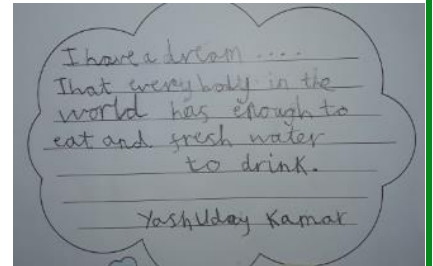 I have a dream ....
That everybody in the
world has enough to
eat and fresh water
to drink.
Yash Uday Kamat